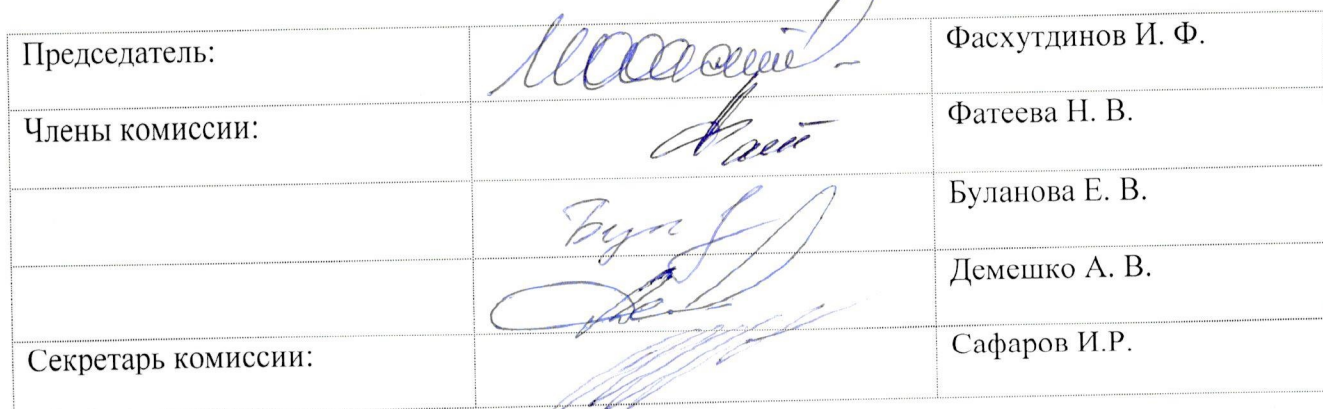 Председатель: Фасхутдинов И. Ф.
Члены комиссии: Фатеева Н. В.
Буланова Е. В.
Демешко А. В.
Секретарь комиссии: Сафаров И.Р.